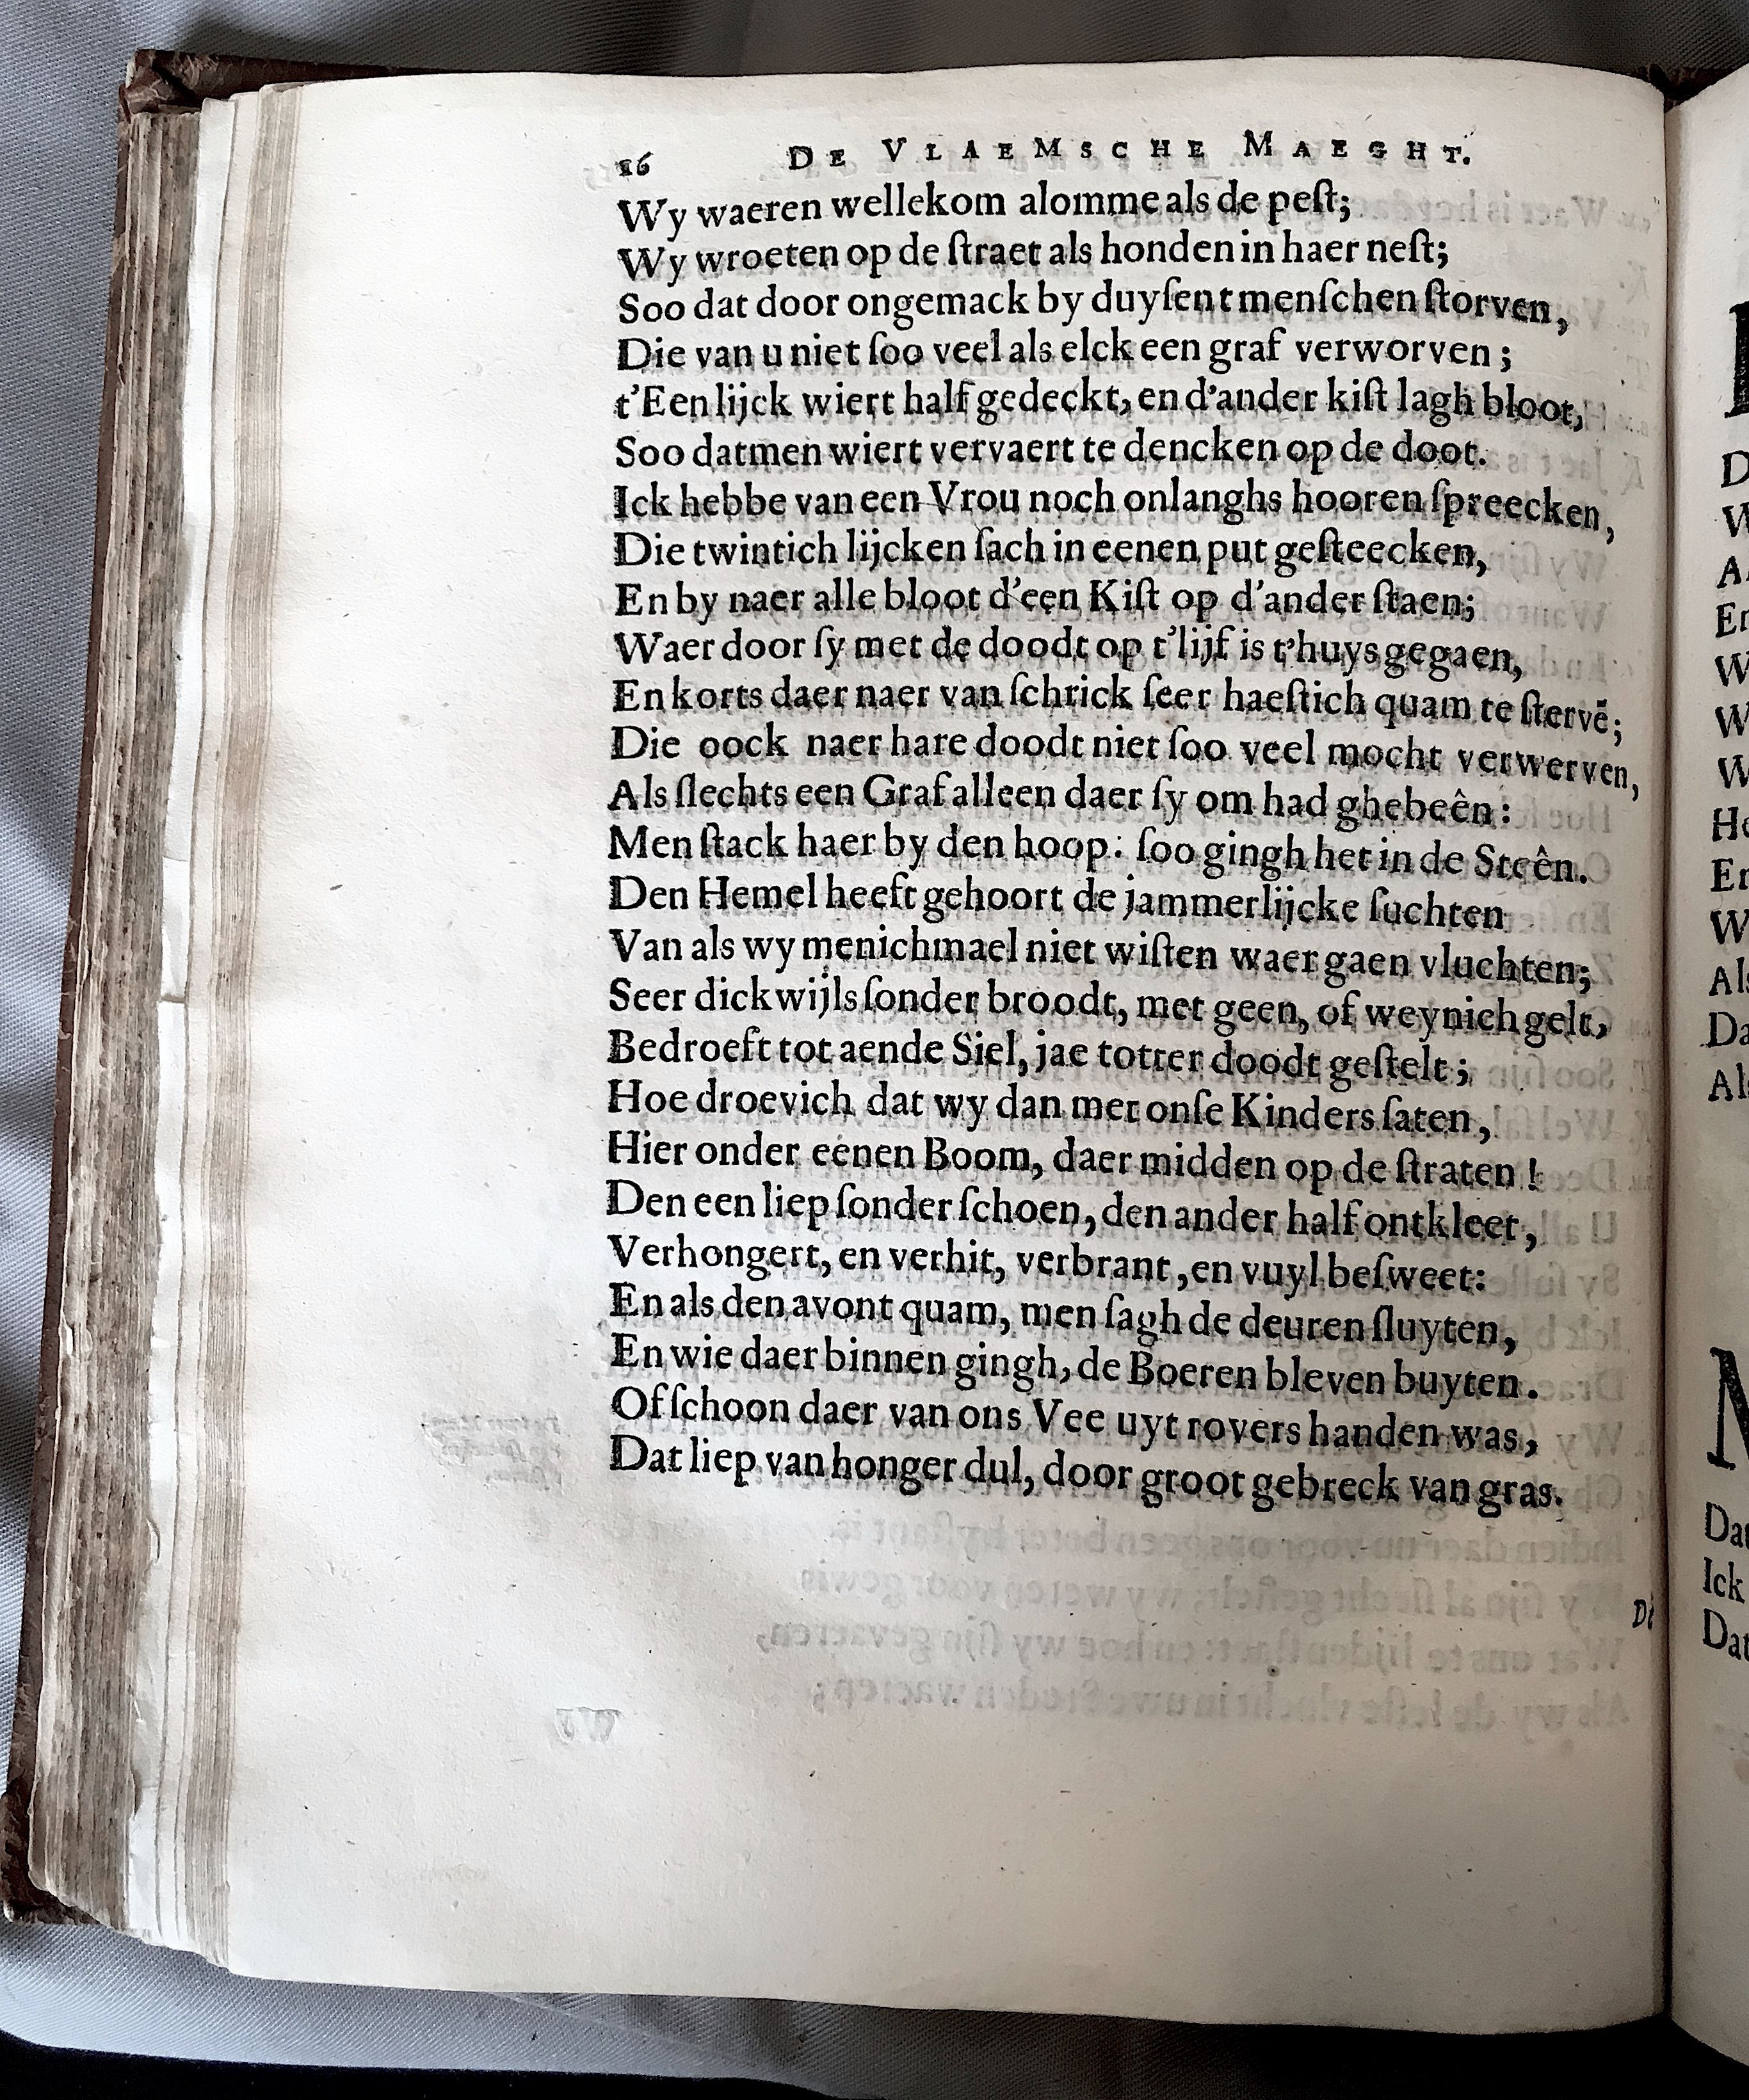 16 DE VLAEMSCHE MAEGHT.
Wy waeren wellekom alomme als de peſt;
Wy wroeten op de ſtraet als honden in haer neſt;
Soo dat door ongemack by duyſent menſchen ſtorven,
Die van u niet ſoo veel als elck een graf verworven;
t'Een lijck wiert half gedeckt, en d'ander kiſt lagh bloot,
Soo datmen wiert vervaert te dencken op de doot.
Ick hebbe van een Vrou noch onlanghs hooren ſpreecken,
Die twintich lijcken ſach in eenen put geſteecken,
En by naer alle bloot d'een Kiſt op d'ander ſtaen;
Waer door ſy met de doodt op t'lijf is t'huys gegaen,
En korts daer naer van ſchrick ſeer haeſtich quam te ſtervē;
Die oock naer hare doodt niet ſoo veel mocht verwerven,
Als ſlechts een Graf alleen daer ſy om had ghebeên:
Men ſtack haer by den hoop: ſoo gingh het in de Steên.
Den Hemel heeft gehoort de jammerlijcke ſuchten
Van als wy menichmael niet wiſten waer gaen vluchten;
Seer dickwijls ſonder broodt, met geen, of weynich gelt,
Bedroeft tot aende Siel, jae totter doodt geſtelt;
Hoe droevich dat wy dan met onſe Kinders ſaten,
Hier onder eenen Boom, daer midden op de ſtraten!
Den een liep ſonder ſchoen, den ander half ontkleet,
Verhongert, en verhit, verbrant, en vuyl beſweet:
En als den avont quam, men ſagh de deuren ſluyten,
En wie daer binnen gingh, de Boeren bleven buyten.
Of ſchoon daer van ons Vee uyt rovers handen was,
Dat liep van honger dul, door groot gebreck van gras.
De